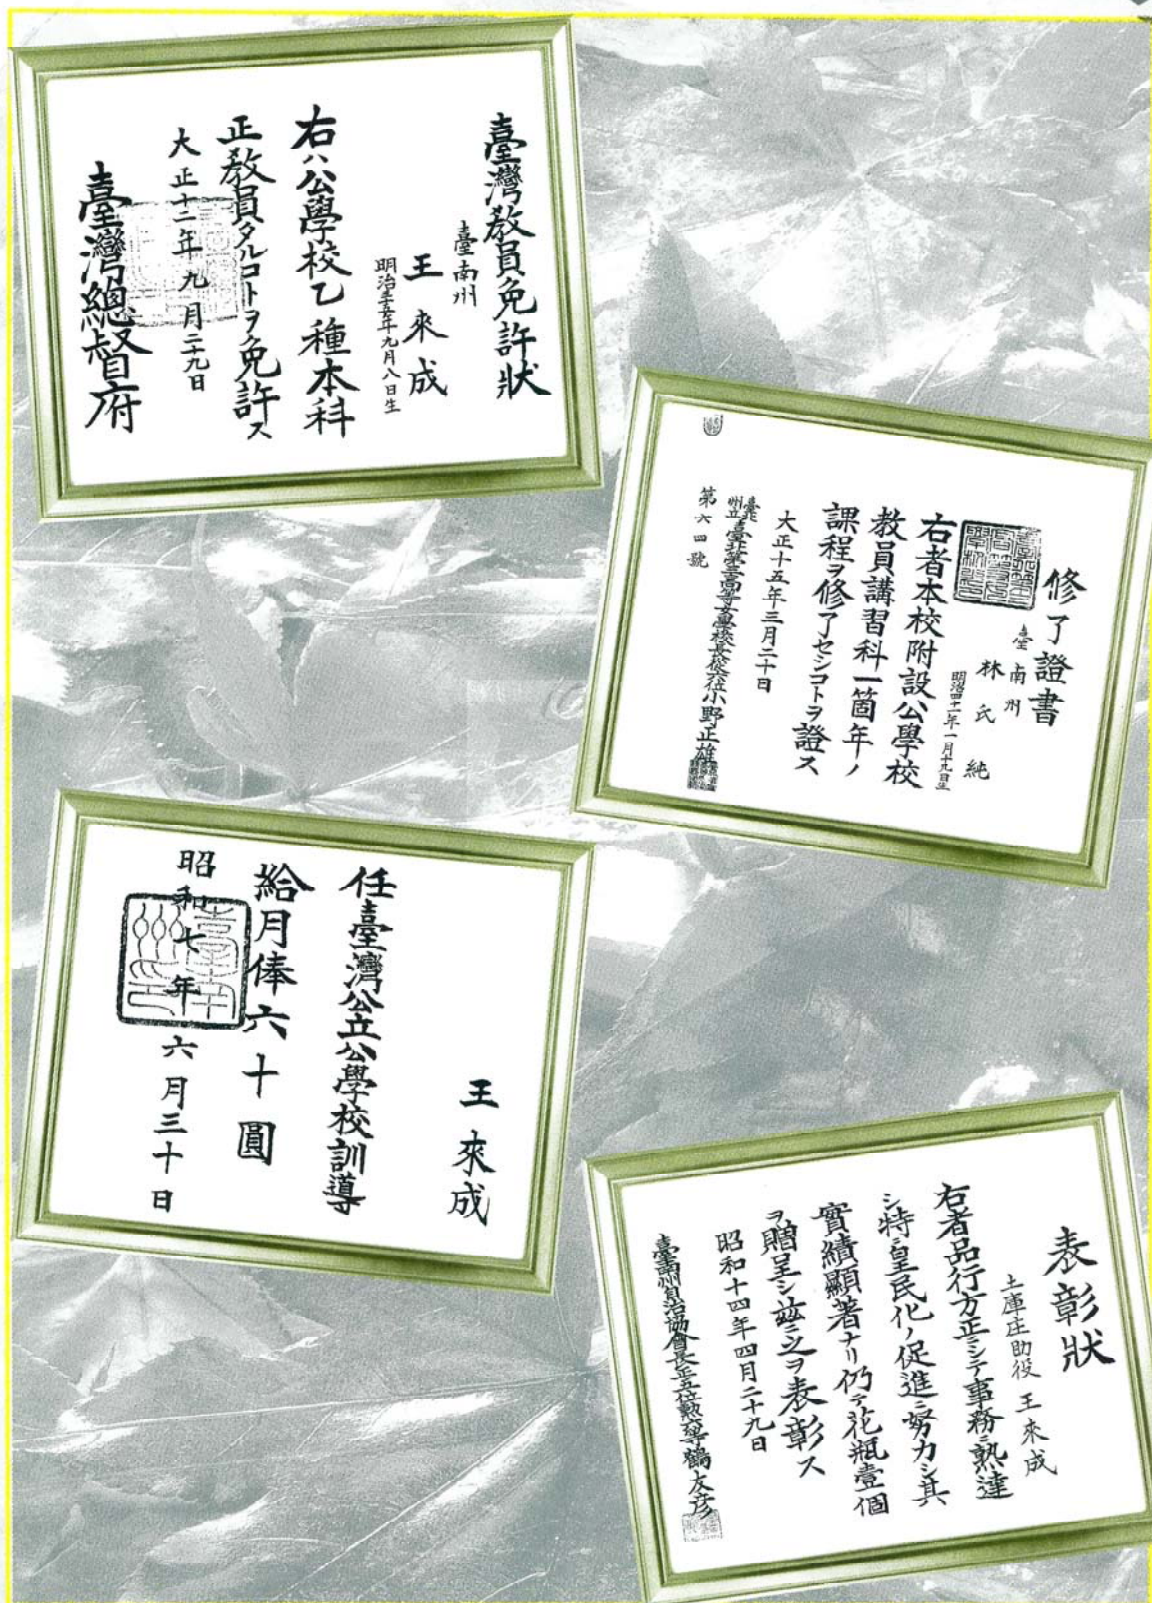 臺灣教員免許狀
臺南州
王來成
明治三十五年九月八日生
右ハ公學校乙種本科
正教員タルコトヲ免許ス
大正十二年九月二十九日
臺灣總督府
修了證書
臺南州
林氏純
明治四十一年一月十九日生
右者本校附設公學校
教員講習科一箇年ノ
課程ヲ修了セシコトヲ證ス
大正十五年三月二十日
臺北州立臺北第三高等女學校長從六位小野正雄
第六四號
王來成
任臺灣公立公學校訓導
給月俸六十圓
昭和七年六月三十日
表彰狀
土庫庄助役 王來成
右者品行方正ニシテ事務ニ熟達
シ特ニ皇民化ノ促進ニ努力シ其
實績顯著ナリ仍テ花瓶壹個
ヲ贈呈シ茲ニ之ヲ表彰ス
昭和十四年四月二十九日
臺南州自治協會長正五位勲六等鶴友彥